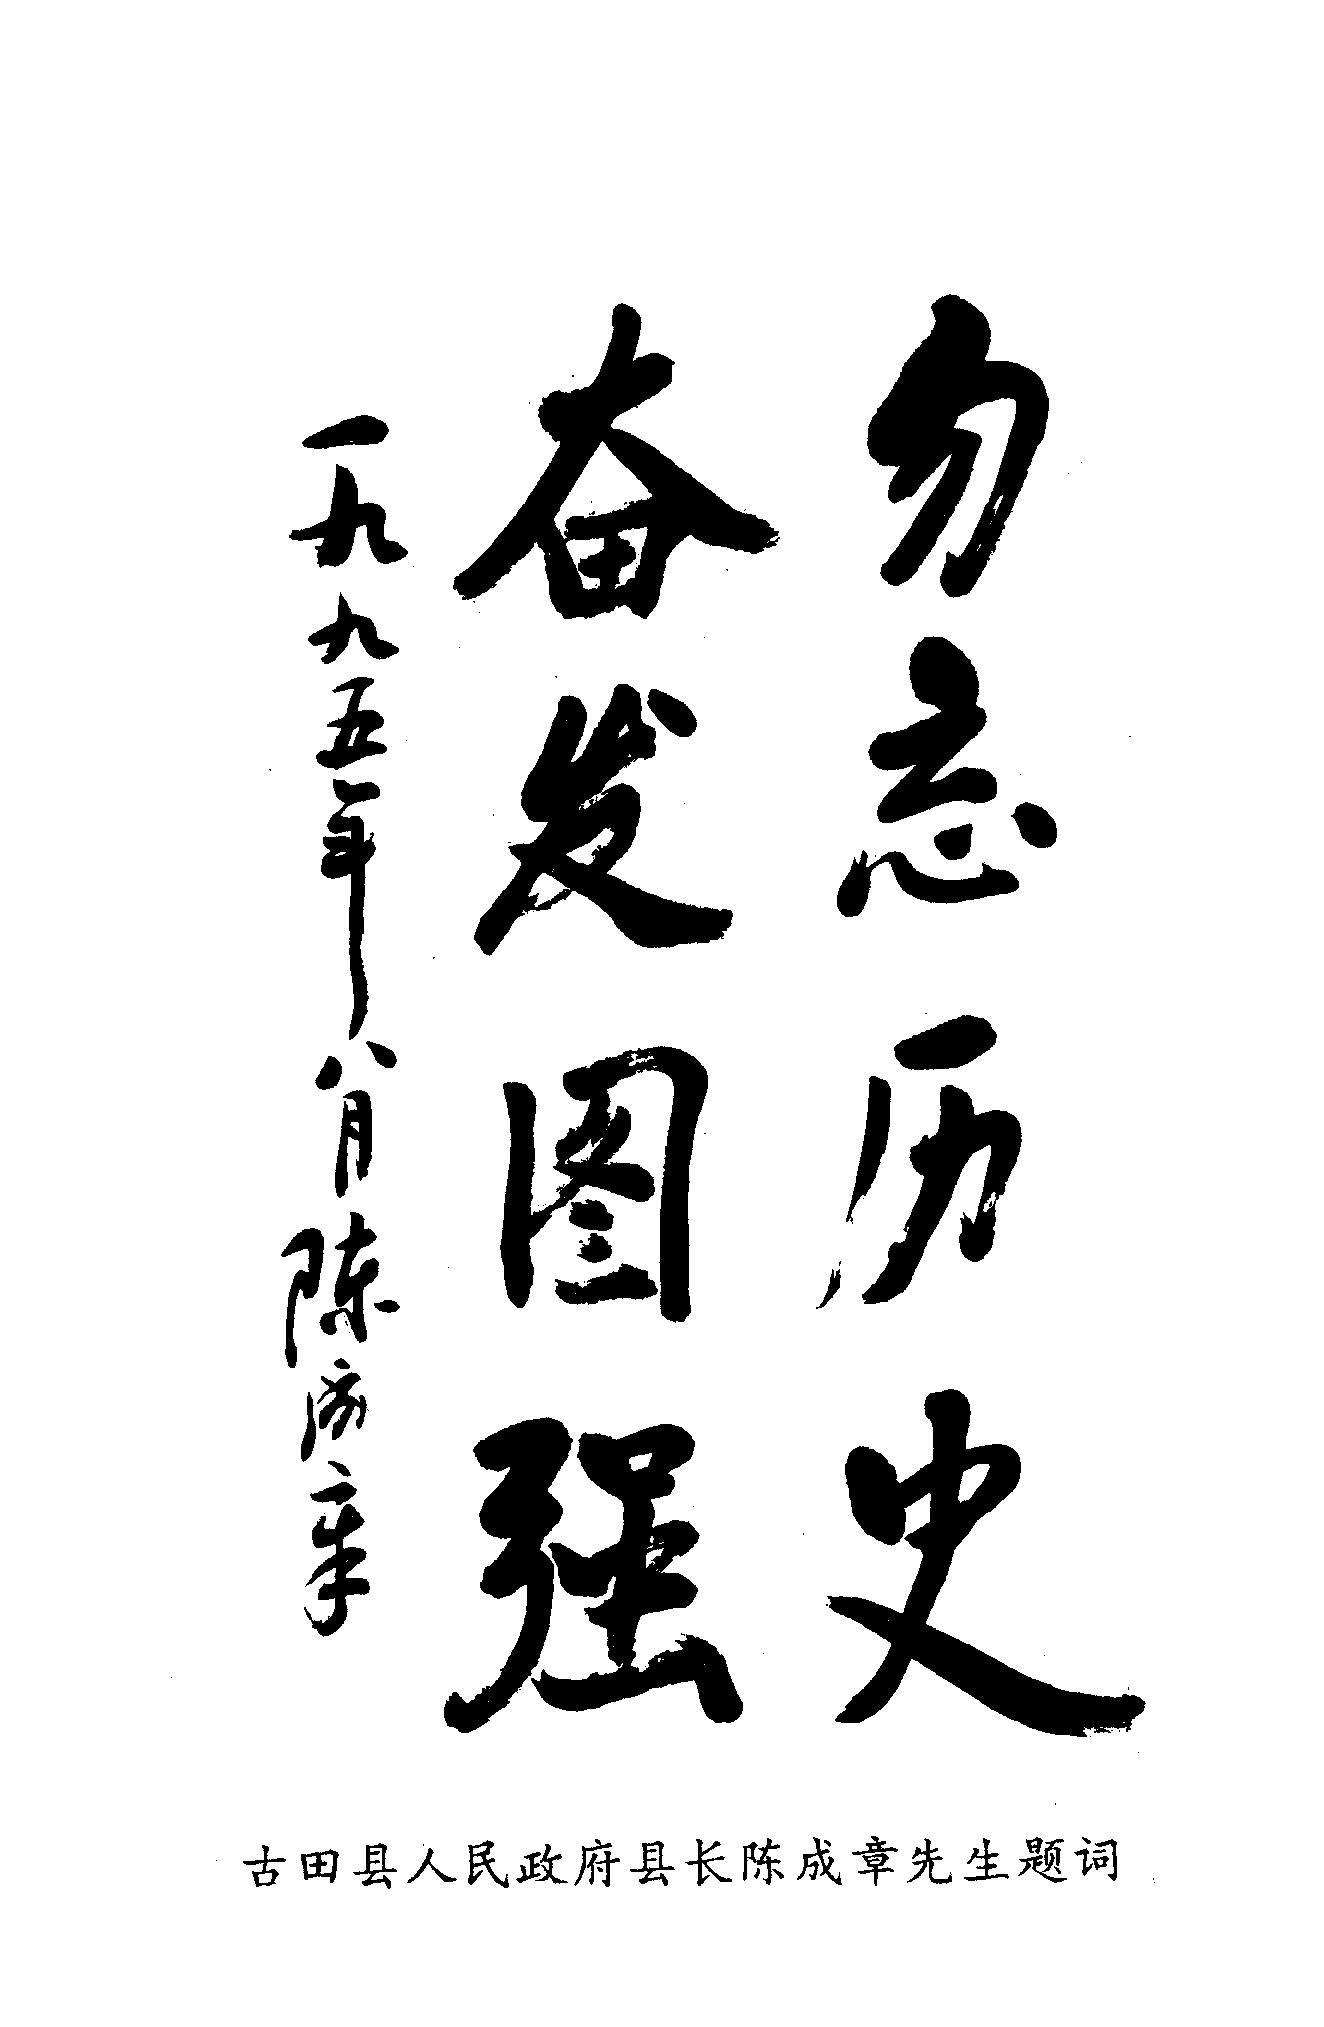 勿忘历史
奋发图强
一九九五年八月陈成章
古田县人民政府县长陈成章先生题词